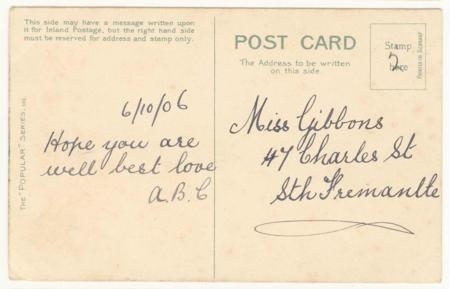 This side may have a message written upon
it for Inland Postage, but the right hand side
must be reserved for address and stamp only.
THE "POPULAR" SERIES.
6/10/06
Hope you are
well best love
A.B.C
POST CARD
The Address to be written
on this side.
Stamp
2
here
Miss Gibbons
47 Charles St
Sth Fremantle